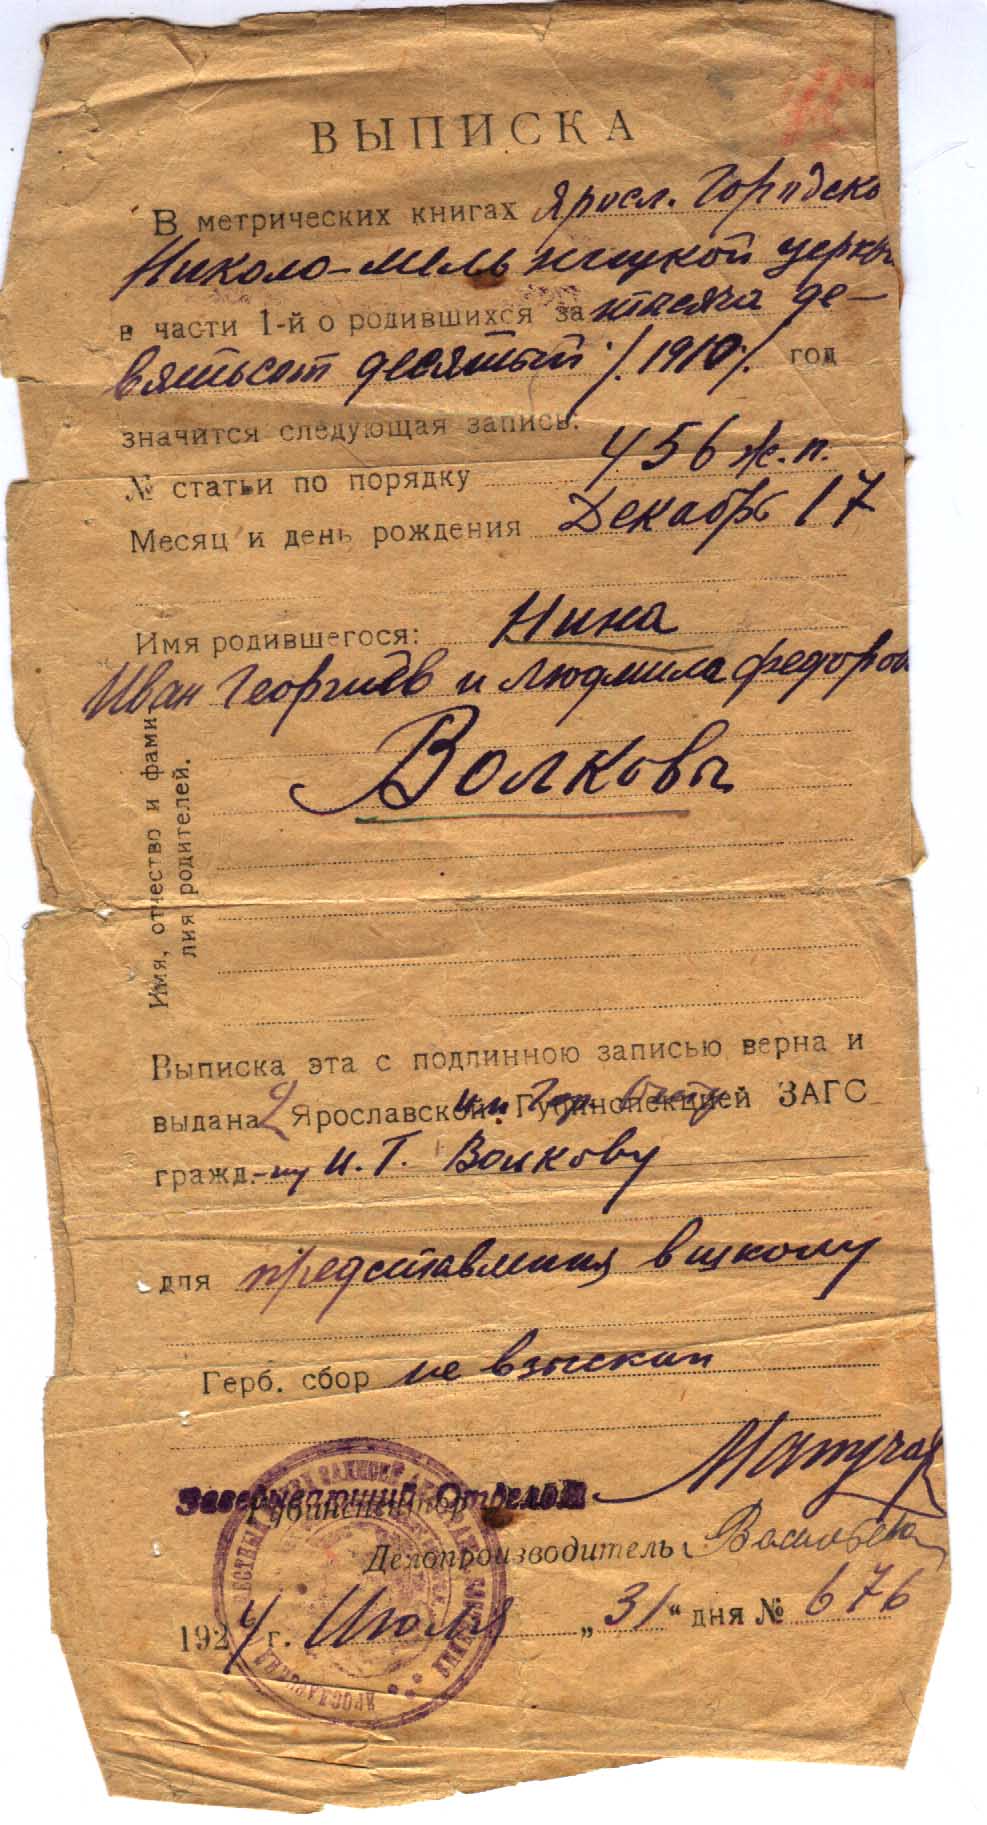 ВЫПИСКА
В метрических книгах Яросл. Городско
Николо-мельницкой церкви
в части 1-й о родившихся за тысяча де-
вятьсот десятый /1910/ год
значится следующая запись:
№ статьи по порядку 456 ж.п.
Месяц и день рождения Декабрь 17
Имя родившегося: Нина
Иван Георгиев и Людмила Федоров
Волковы
Имя, отчество и фами-
лия родителей.
Выписка эта с подлинною записью верна и
выдана Ярославской Губинспекцией ЗАГС
гражд.-ну И. Г. Волкову
для представления в школу
Герб. сбор не взыскан
Заведывающий Отделом
Губинспектор
Делопроизводитель
1924 г. Июля „31“ дня № 676